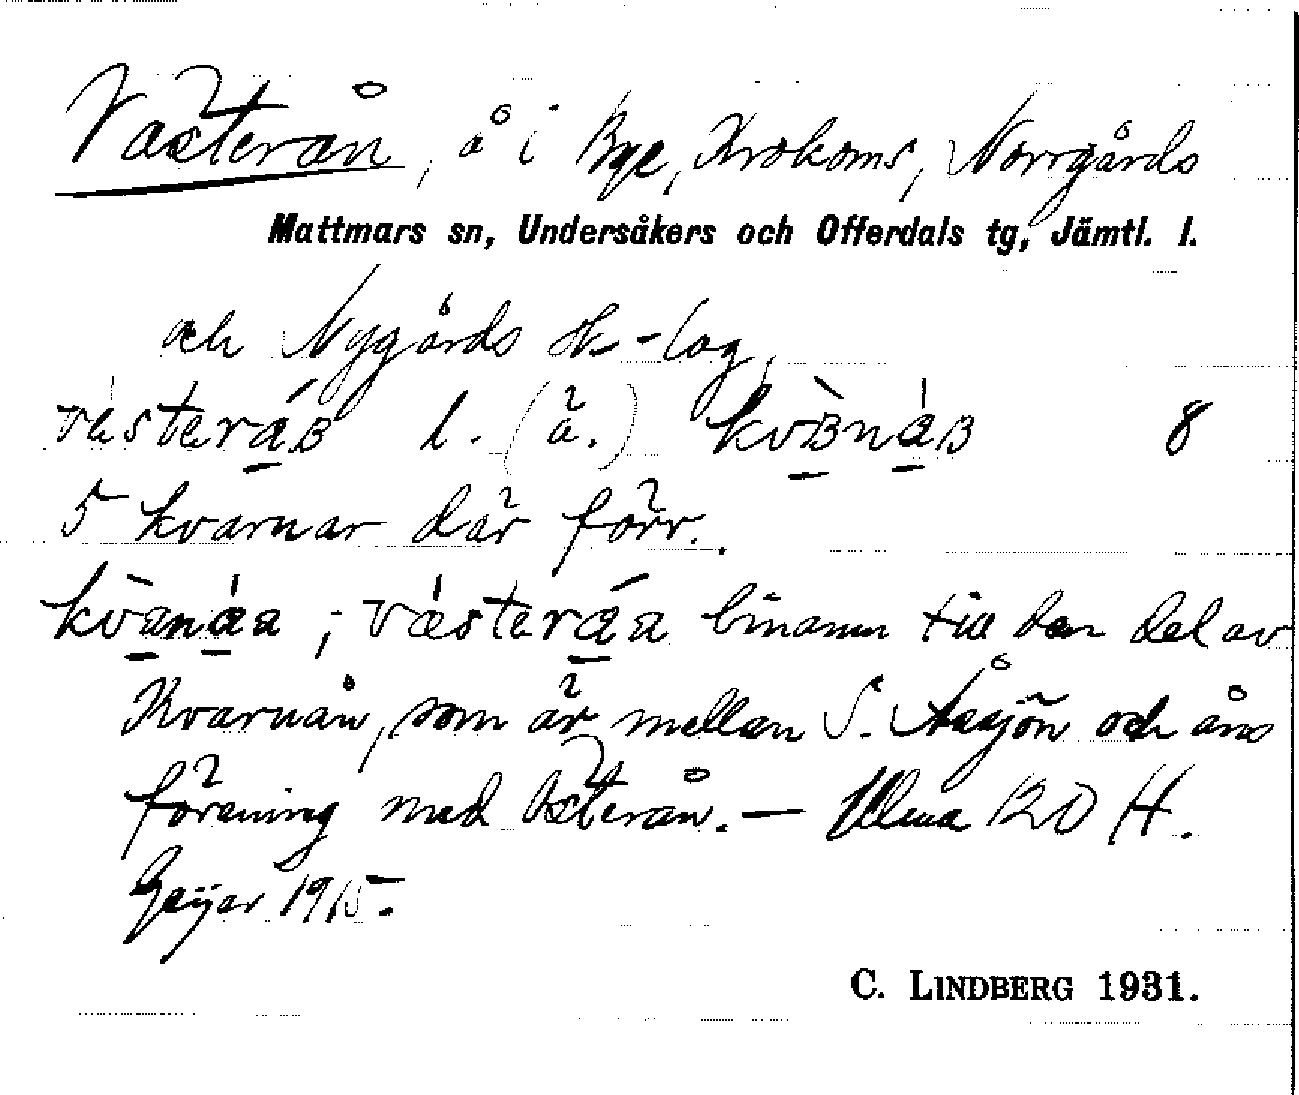 Västerån, å i Bye, Krokoms, Norrgårds
Mattmars sn, Undersåkers och Offerdals tg, Jämtl. l.
och Nygårds sk-lag,
västeráʙ l. (ä.) kvʙ̀náʙ 8
5 kvarnar där förr.
kvànáa ; västeráa binamn till den del av
Kvarnån, som är mellan S. Åasjön och åns
förening med Österån. — Ulma 120 H.
Geijer 1915.
C. LINDBERG 1931.